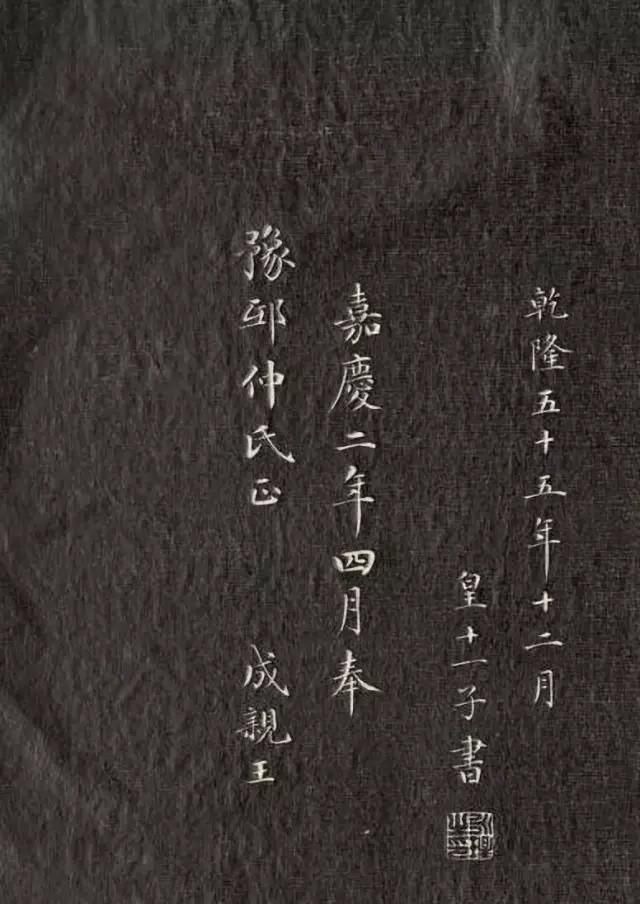 乾隆五十五年十二月
皇十一子書
嘉慶二年四月奉
豫邸仲氏正
成親王